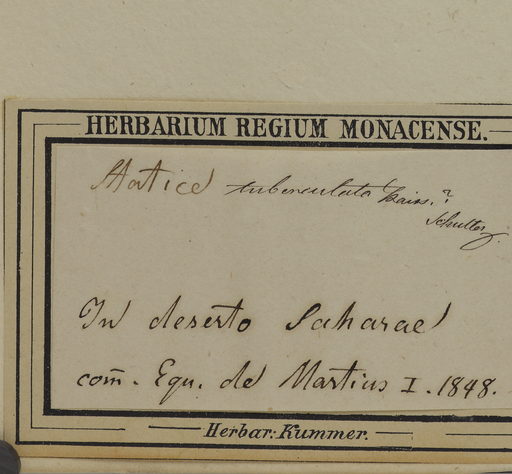 HERBARIUM REGIUM MONACENSE.
Statice tuberculata Boiss.?
Schultz.
In deserto Saharae
com̄. Equ. de Martius I. 1848.
Herbar: Kummer.